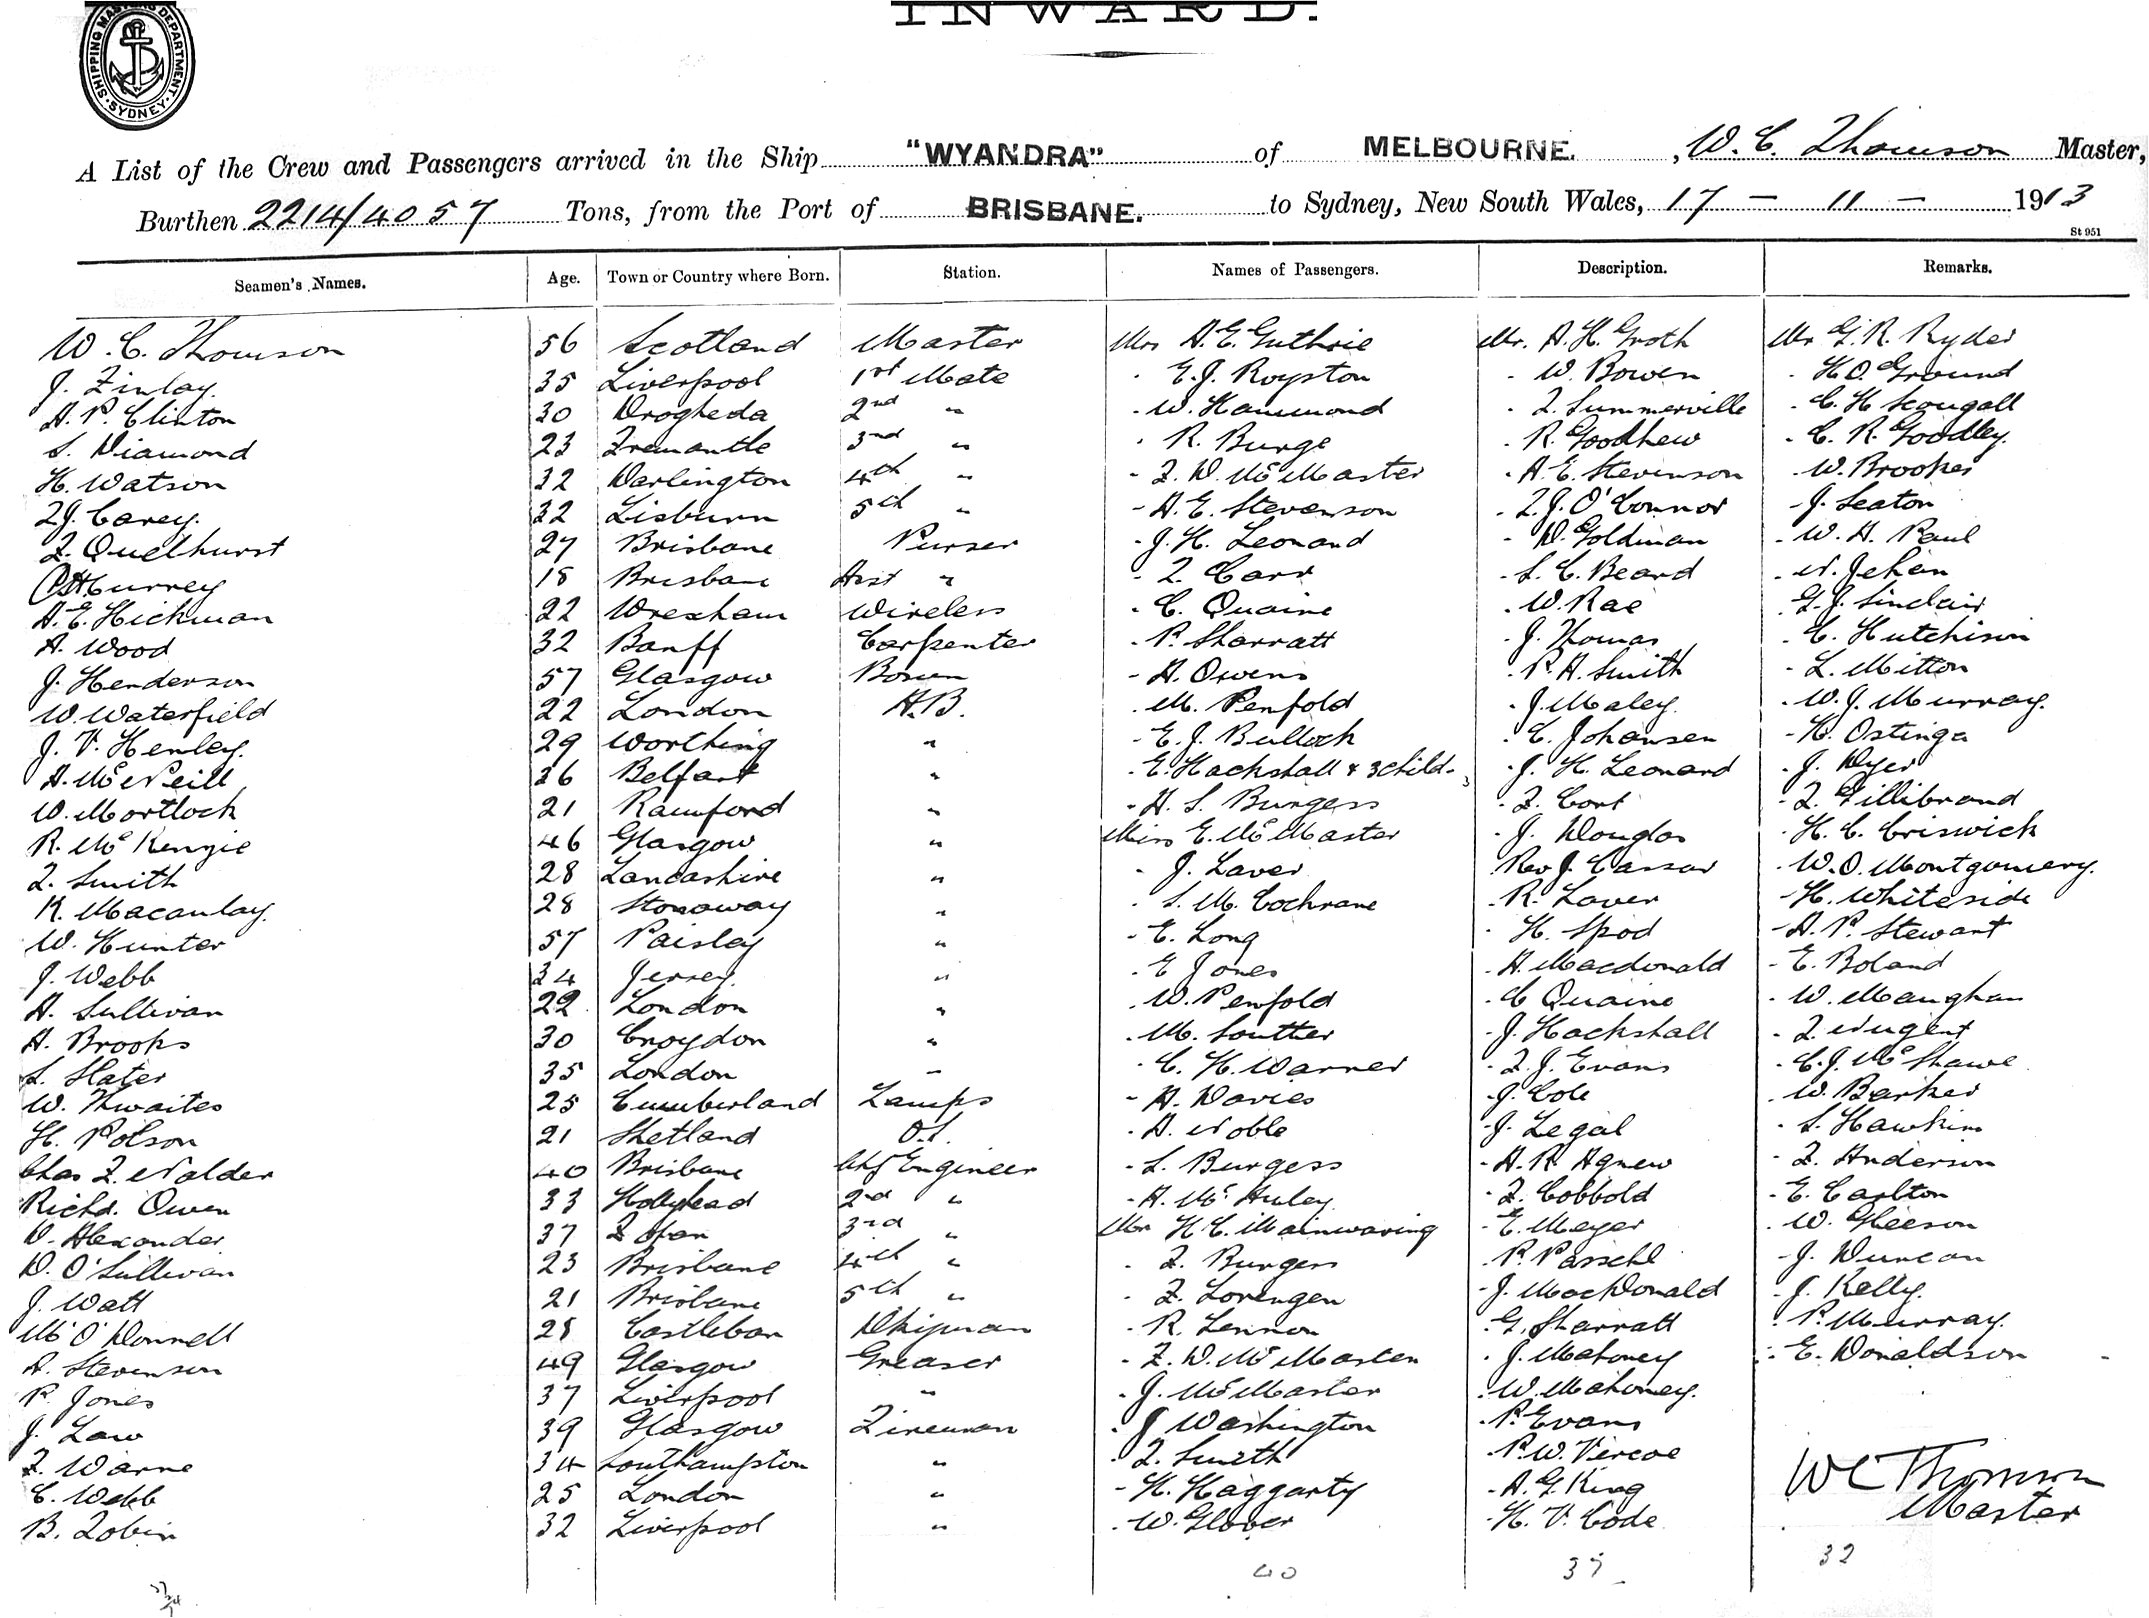 INWARD.
SHIPPING MASTERS DEPARTMENT
SYDNEY
A List of the Crew and Passengers arrived in the Ship "WYANDRA" of MELBOURNE. , W. C. Thomson Master,
Burthen 2214/4057 Tons, from the Port of BRISBANE. to Sydney, New South Wales, 17 - 11 - 1913
St 951
Seamen's Names. Age. Town or Country where Born. Station. Names of Passengers. Description. Remarks.
W. C. Thomson 56 Scotland Master Mrs A. E. Guthrie Mr. A. H. Groth Mr G. R. Ryder
J. Finlay. 35 Liverpool 1st Mate " E. J. Royston " W. Bowen " H O Ground
A. P. Clinton 30 Drogheda 2nd " - W. Hammond - F. Summerville - C. H. Scougall
S. Diamond 23 Fremantle 3rd " - R. Burge - R. Goodhew - C. R. Goodley.
H. Watson 32 Darlington 4th " - F. D. McMaster - A. E. Stevenson - W. Brooker
F J. Carey. 32 Lisburn 5th " - A. E. Stevenson - F. J. O'Connor - J. Seaton
F. Quelhurst 27 Brisbane Purser - J. H. Leonard - D. Goldman - W. A. Paul
Murrey 18 Brisbane Asst " - F. Carr - S. C. Beard - N. Jehan
A. E. Hickman 22 Wrexham Wireless - C. Quaine - W. Rae - G. J. Sinclair
A. Wood 32 Banff Carpenter - P. Sharratt - J. Thomas - C. Hutchison
J. Henderson 57 Glasgow Bosun - A. Owens - P. A. Smith - L. Mitton
W. Waterfield 22 London A.B. - M. Penfold - J. Maley. - W. J. Murray.
J. V. Henley. 29 Worthing " - E. J. Bullock - E. Johansen - H. Ostinga
A. McNeill 36 Belfast " - E. Hackshall & 3 child. - J. H. Leonard - J. Dyer
W. Mortlock 21 Ramford " - H. S. Burgess - F. Cort - F. Gillibrand
R. McKenzie 46 Glasgow " Miss E. McMaster - J. Douglas - H. C. Criswick
F. Smith 28 Lancashire " - J. Laver Rev J. Cassar - W. O. Montgomery.
K. Macaulay. 28 Stonoway " - S. M. Cochrane - R. Laver - H. Whiteside
W. Hunter 57 Paisley " - E. Long - H. Spod - A. P. Stewart
J. Webb 34 Jersey. " - E Jones - A. Macdonald - E. Boland
A. Sullivan 22 London " - W. Penfold - C Quaine - W. Maughan
A. Brooks 30 Croydon " - M. Soutter - J. Hackshall - F. Nugent
S. Slater 35 London " - C. H. Warner - F. J. Evans - C. J. McShawe
W. Thwaites 25 Cumberland Lamps - A. Davies - J. Cole - W. Barker
H. Polson 21 Shetland O.S. - A. Noble - J. Legal - S. Hawkins
Chas F. Nalder 40 Brisbane Chf Engineer - S. Burgess - A. R. Agnew - F. Anderson
Richd. Owen 33 Hollyhead 2nd " - A. McAuley - F. Cobbold - E. Carlton
D. Alexander 37 3rd " Mr H. C. Mainwaring - E. Meyer - W. Gleeson
D. O'Sullivan 23 Brisbane 4th " - F. Burgess - P. Passchl - J. Duncan
J. Watt 21 Brisbane 5th " - F. Lorengen - J. MacDonald - J. Kelly.
M O'Donnell 28 Castlebar Dkyman - R. Lennon - G. Sharratt - P. Murray.
A. Stevenson 49 Glasgow Greaser - F. D. McMaster - J. Mahoney - E. Donaldson
P. Jones 37 Liverpool " - J. McMaster - W. Mahoney.
J. Law 39 Glasgow Fireman - J Washington - P. Evans
F. Warne 34 Southampton " - F. Smith - P. W. Vercoe
C. Webb 25 London " - H. Haggarty - A. G. King
B. Tobin 32 Liverpool " - W. Glover - H. V. Code
W C Thomson
Master
40 37 32